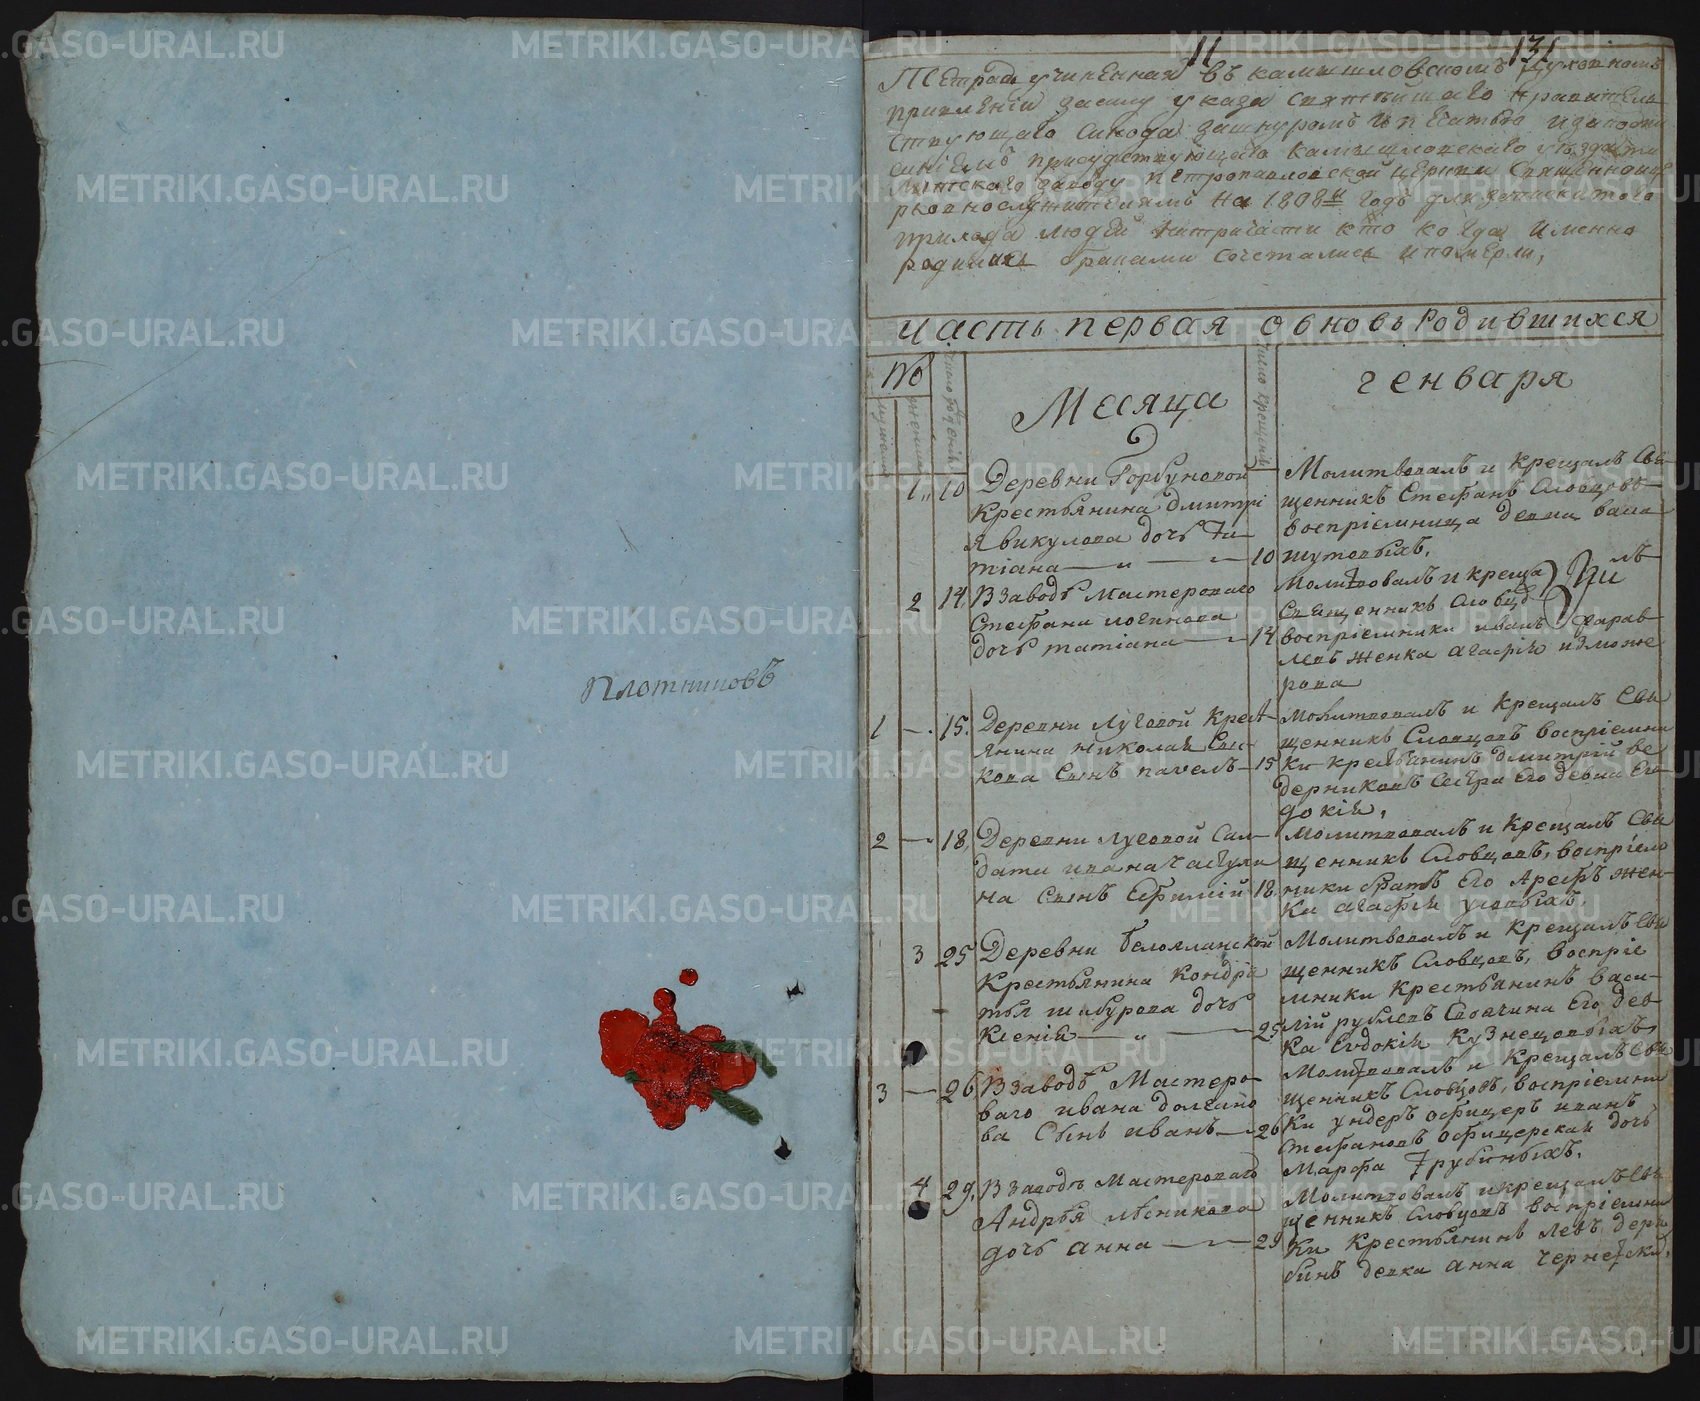 Плотниковъ
11 131
Тетрадь учиненная въ камышловскомъ духовномъ
правленіи засилу указа святѣйшаго правитель
ствующаго Синода зашнуромъ и печатью
присудствующаго камышловскаго уѣзда
завода петропавловской церкви Священноце
рковнослужителямъ на 1808й годъ для записки того
прихода людей натричасти кто когда именно
родились браками сочетались и померли,
часть первая о вновь родившихся
№ Месяца генваря
мужеска женска число рожденія число крещенія
1 10 Деревни Горбуновой
Крестьянина дмитрі
я викулова дочь Та
тіана 10
Молитвовалъ и крещалъ Свя
щенникъ Стефанъ Словцовъ
воспріемница девка
шутовыхъ.
2 14 В Заводѣ Мастероваго
Стефана логинова
дочь татіана 14
Молитвовалъ и креща лъ
Священникъ Словцо
воспріемники иванъ
левъ женка агафія
рова
1 15. Деревни Луговой Крест
янина николая
кова Сынъ павелъ 15
Молитвовалъ и Крещалъ Свя
щенникъ Словцовъ воспріемни
ки крестьянинъ дмитрій ве
дерниковъ Сестра Его девка Ев
докія,
2 18, Деревни Луговой Сал
дата ивана
на Сынъ Ефимій 18
Молитвовалъ и Крещалъ Свя
щенникъ Словцовъ, воспріем
ники братъ Его Арефъ жен
ка агафія
3 25 Деревни Белоглинской
Крестьянина Кондра
тья шабурова дочь
Ксенія 25
Молитвовалъ и Крещалъ Свя
щенникъ Словцовъ, воспріе
мники крестьянинъ васи
лій рублевъ Его дев
ка Евдокія Кузнецовыхъ,
3 26 В Заводѣ Мастеро
ваго ивана долгано
ва Сынъ иванъ 26
Молитвовалъ и Крещалъ Свя
щенникъ Словцовъ, воспріемни
ки ундеръ офицеръ иванъ
Стефановъ офицерская дочь
Марфа Трубиныхъ.
4 29, В Заводѣ Мастероваго
Андрѣя лѣсникова
дочь анна 29
Молитвовалъ и крещалъ Свя
щенникъ Словцовъ воспріемни
ки Крестьянинъ левъ деря
бинъ девка анна
METRIKI.GASO-URAL.RU